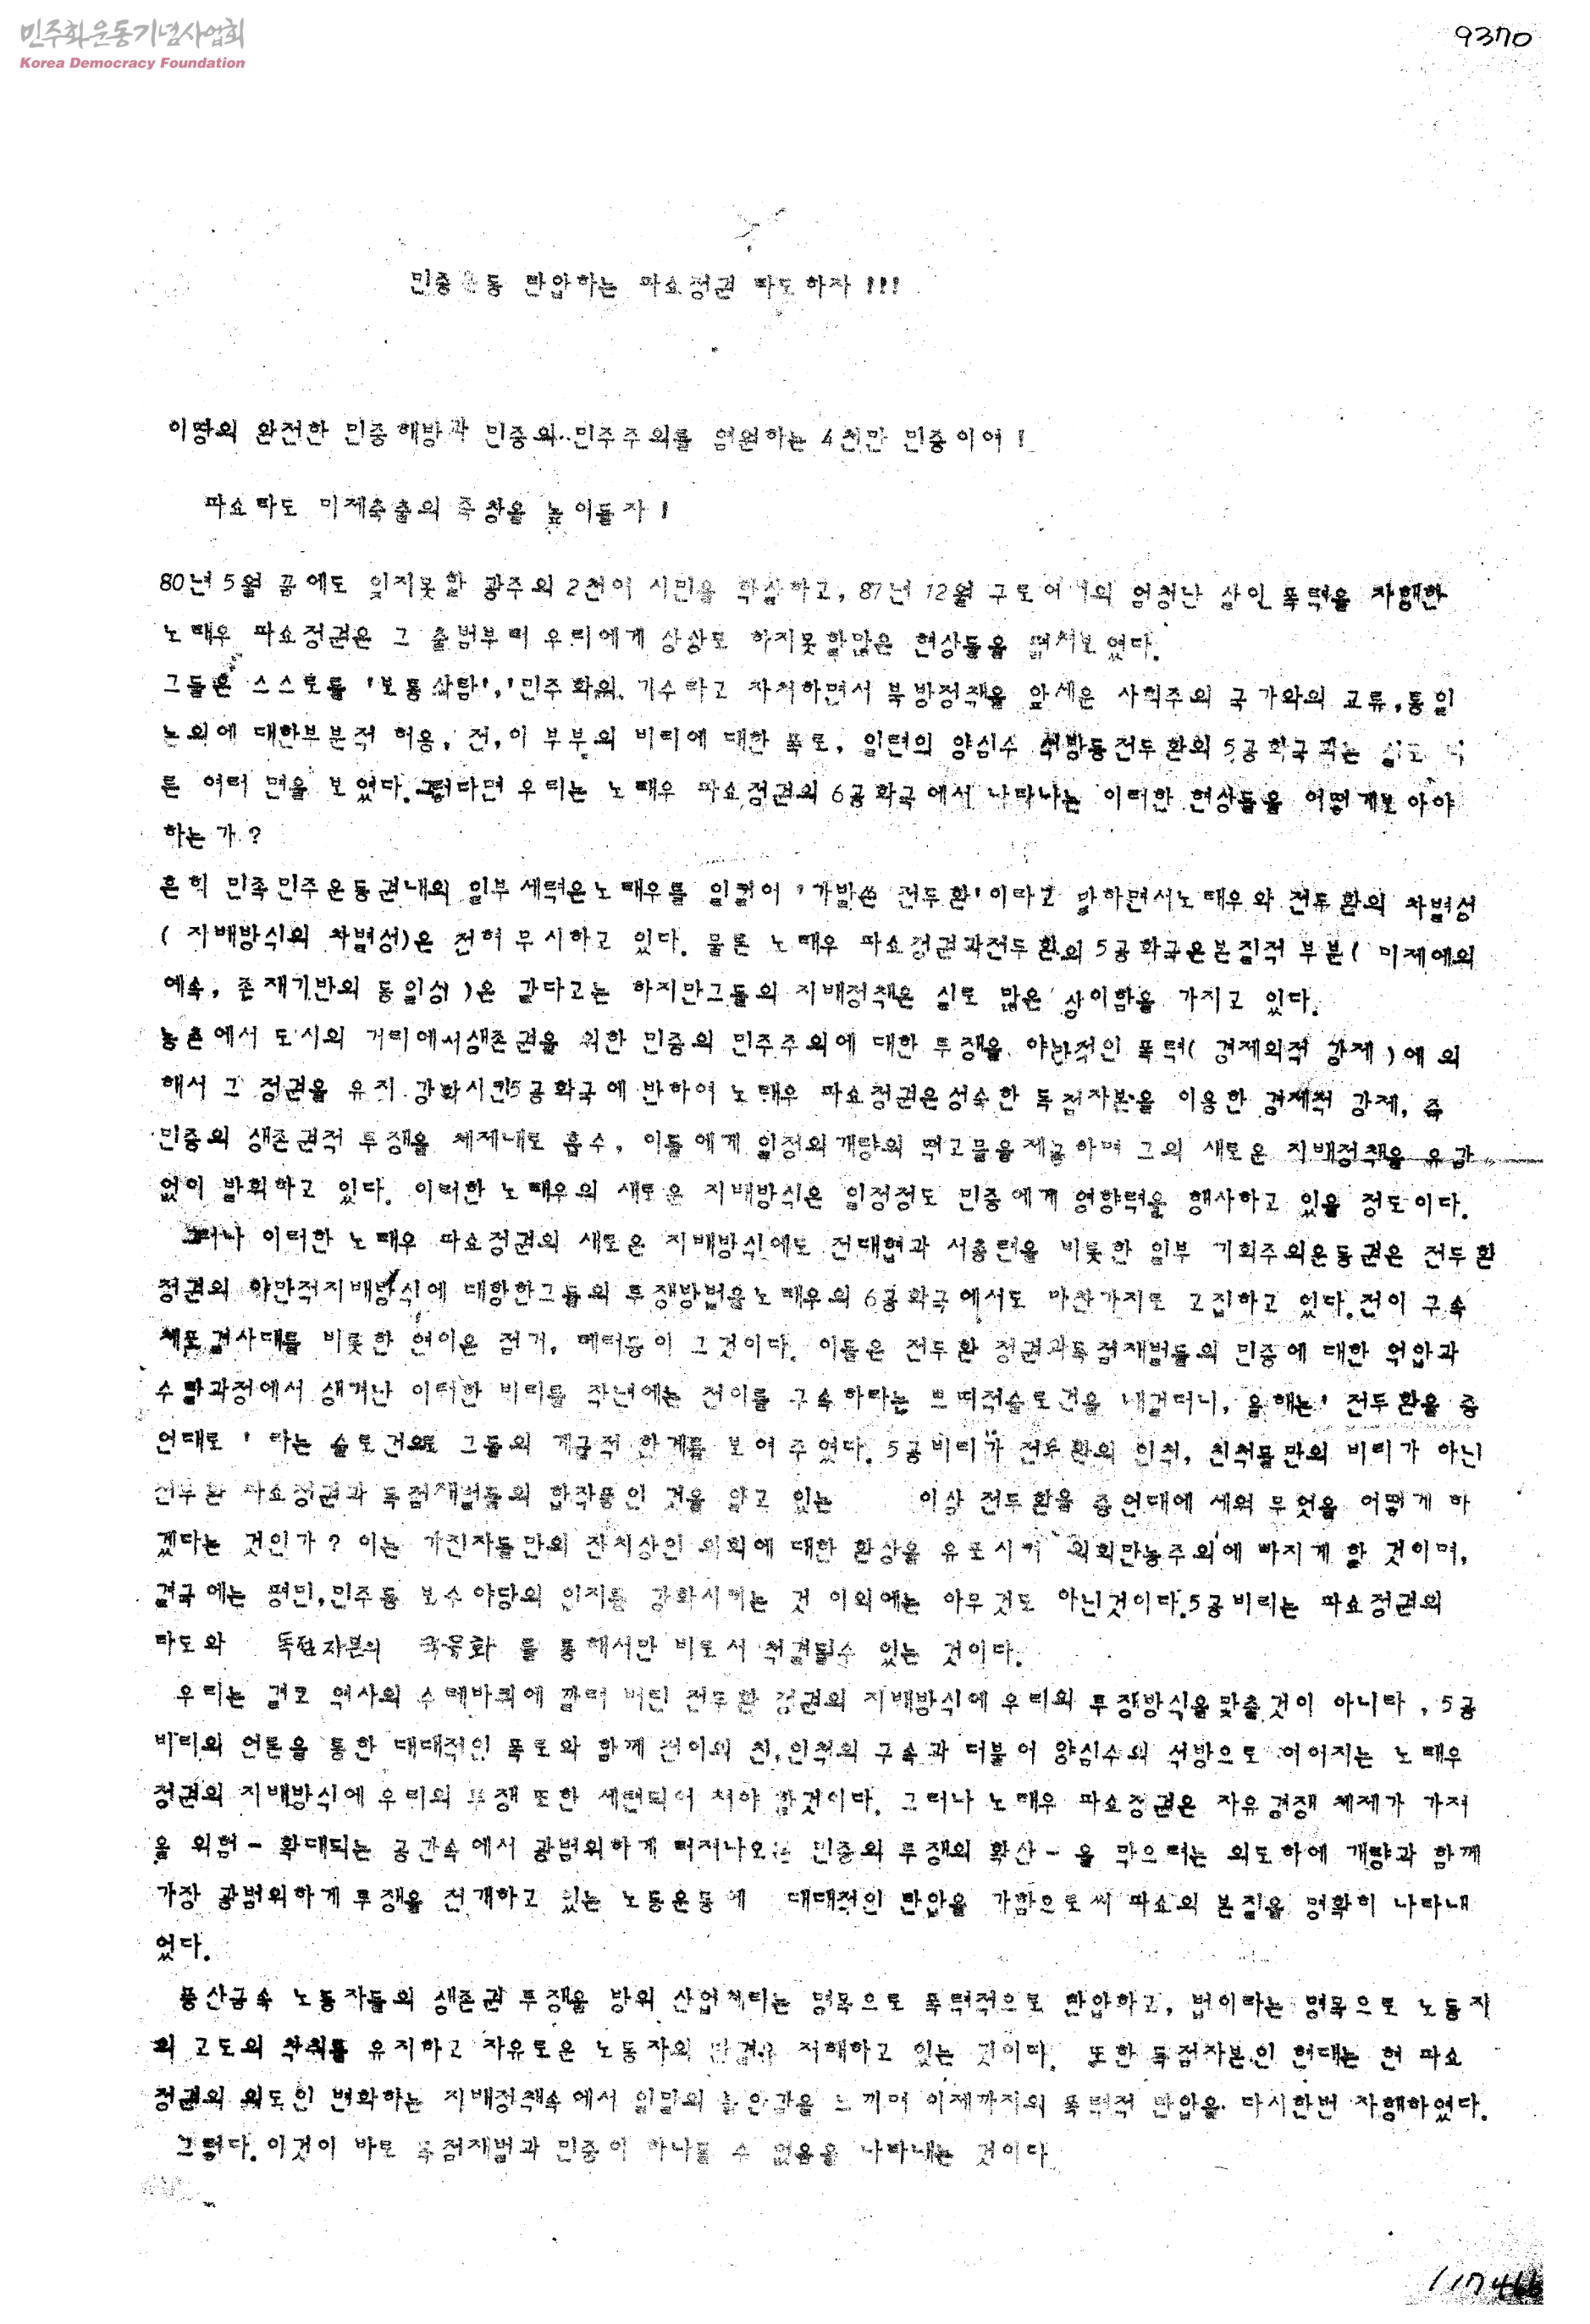 민주화운동기념사업회
Korea Democracy Foundation
9370
민중운동 탄압하는 파쇼정권 타도하자 !!!
이땅의 완전한 민중해방과 민중의 민주주의를 염원하는 4천만 민중이여 !
파쇼타도 미제축출의 족창을 높이들자 !
80년 5월 꿈에도 잊지못할 광주의 2천여 시민을 학살하고, 87년 12월 구로에서의 엄청난 살인 폭력을 자행한
노태우 파쇼정권은 그 출범부터 우리에게 상상도 하지못할많은 현상들을 펼쳐보였다.
그들은 스스로를 '보통사람','민주화의 기수라고 자처하면서 북방정책을 앞세운 사회주의 국가와의 교류,통일
논의에 대한부분적 허용, 전,이 부부의 비리에 대한 폭로, 일련의 양심수 석방등전두환의 5공화국과는 실로 다
른 여러 면을 보였다.그렇다면 우리는 노태우 파쇼정권의 6공화국에서 나타나는 이러한 현상들을 어떻게보아야
하는가?
흔히 민족민주운동권내의 일부세력은노태우를 일컬어 '가발쓴 전두환'이라고 말하면서노태우와 전두환의 차별성
( 지배방식의 차별성)은 전혀 무시하고 있다. 물론 노태우 파쇼정권과전두환의 5공화국은본질적 부분( 미제에의
예속, 존재기반의 동일성 )은 같다고는 하지만그들의 지배정책은 실로 많은 상이함을 가지고 있다.
농촌에서 도시의 거리에서생존권을 위한 민중의 민주주의에 대한 투쟁을 야만적인 폭력( 경제외적 강제 )에 의
해서 그 정권을 유지 강화시킨5공화국에 반하여 노태우 파쇼정권은성숙한 독점자본을 이용한 경제적 강제, 즉
민중의 생존권적 투쟁을 체제내로 흡수, 이들에게 일정의개량의 떡고물을제공하며 그의 새로운 지배정책을 유감
없이 발휘하고 있다. 이러한 노태우의 새로운 지배방식은 일정정도 민중에게 영향력을 행사하고 있을 정도이다.
그러나 이러한 노태우 파쇼정권의 새로운 지배방식에도 전대협과 서총련을 비롯한 일부 기회주의운동권은 전두환
정권의 야만적지배방식에 대항한그들의 투쟁방법을노태우의 6공화국에서도 마찬가지로 고집하고 있다.전이 구속
체포결사대를 비롯한 연이은 점거, 테러등이 그것이다. 이들은 전두환 정권과독점재벌들의 민중에 대한 억압과
수탈과정에서 생겨난 이러한 비리를 작년에는 전이를 구속하라는 쁘띠적슬로건을 내걸더니, 올해는' 전두환을 증
언대로 ' 라는 슬로건으로 그들의 계급적 한계를 보여 주었다. 5공비리가 전두환의 인척, 친척들만의 비리가 아닌
전두환 파쇼정권과 독점재벌들의 합작품인 것을 알고 있는 이상 전두환을 증언대에 세워 무엇을 어떻게 하
겠다는 것인가? 이는 가진자들만의 잔치상인 의회에 대한 환상을 유포시켜 의회만능주의에 빠지게 할 것이며,
결국에는 평민,민주등 보수야당의 입지를 강화시키는 것 이외에는 아무것도 아닌것이다.5공비리는 파쇼정권의
타도와 독점자본의 국유화 를 통해서만 비로서 척결될수 있는 것이다.
우리는 결코 역사의 수레바퀴에 깔려 버린 전두환 정권의 지배방식에 우리의 투쟁방식을맞출것이 아니라 , 5공
비리의 언론을 통한 대대적인 폭로와 함께 전이의 친,인척의 구속과 더불어 양심수의 석방으로 이어지는 노태우
정권의 지배방식에 우리의 투쟁 또한 세련되어 져야 할것이다. 그러나 노태우 파쇼정권은 자유경쟁 체제가 가져
올 위험 - 확대되는 공간속에서 광범위하게 터져나오는 민중의 투쟁의 확산 - 을 막으려는 의도하에 개량과 함께
가장 광범위하게 투쟁을 전개하고 있는 노동운동에 대대적인 탄압을 가함으로써 파쇼의 본질을 명확히 나타내
었다.
풍산금속 노동자들의 생존권 투쟁을 방위 산업체라는 명목으로 폭력적으로 탄압하고, 법이라는 명목으로 노동자
의 고도의 착취를 유지하고 자유로운 노동자의 저해하고 있는 것이다. 또한 독점자본인 현대는 현 파쇼
정권의 의도인 변화하는 지배정책속에서 일말의 불안감을 느끼며 이제까지의 폭력적 탄압을 다시한번 자행하였다.
그렇다.이것이 바로 독점재벌과 민중이 하나될 수 없음을 나타내는 것이다
117466